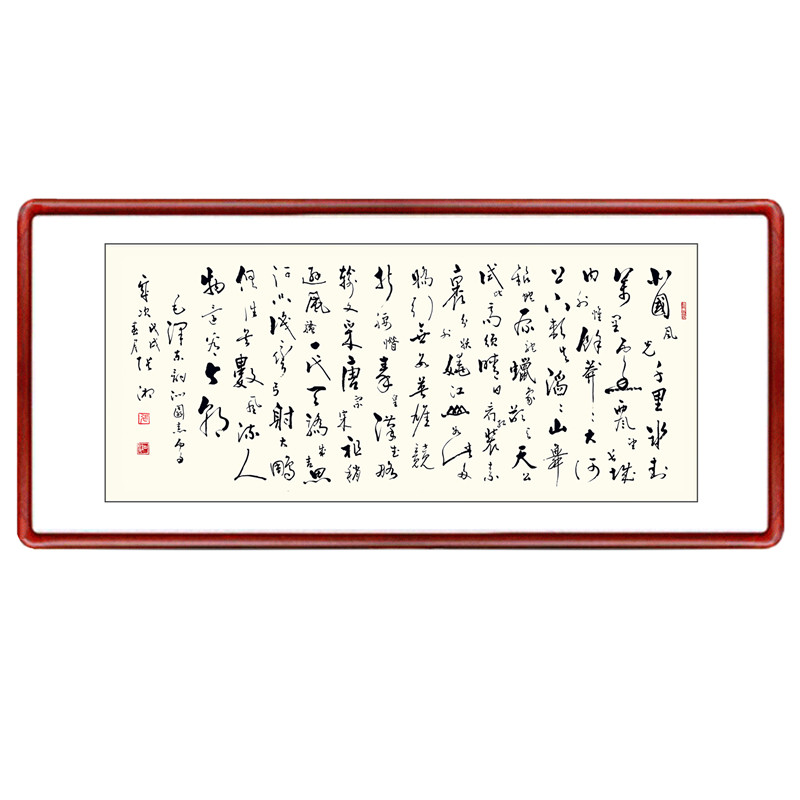 北國風光千里冰封
萬里雪飄望長城
内外惟餘莽莽大河
上下頓失滔滔山舞
銀蛇原馳蠟象欲与天公
試比高須晴日看紅裝素
裹分外妖嬈江山如此多
嬌引無數英雄競
折腰惜秦皇漢武略
輸文采唐宗宋祖稍
遜風騷一代天驕成吉思
汗只識彎弓射大鵰
俱往矣數風流人
物還看今朝
毛澤東詞沁園春雪
歲次戊戌